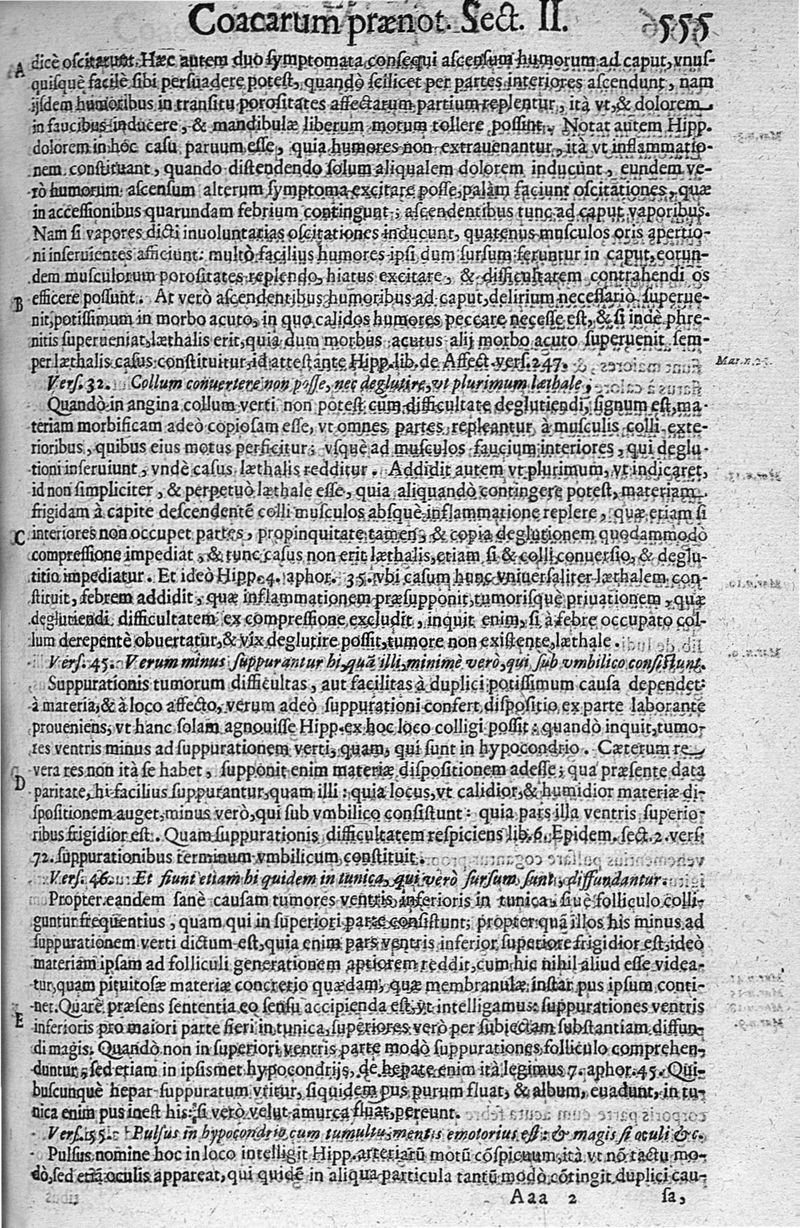 Coacarum prænot. Sect. II. 555
A dicè oscitarunt. Hæc autem duo symptomata consequi ascensum humorum ad caput, vnus-
quisquè facilè sibi persuadere potest, quandò scilicet per partes interiores ascendunt, nam
ijsdem humoribus in transitu porositates affectarum partium replentur, ità vt, & dolorem
in faucibus inducere, & mandibulæ liberum motum tollere possint. Notat autem Hipp.
dolorem in hoc casu paruum esse, quia humores non extrauenantur, ità vt inflammatio-
nem constituant, quando distendendo solum aliqualem dolorem inducunt, eundem ve-
rò humorum ascensum alterum symptoma excitare posse, palàm faciunt oscitationes, quæ
in accessionibus quarundam febrium contingunt; ascendentibus tunc ad caput vaporibus.
Nam si vapores dicti inuoluntarias oscitationes inducunt, quatenus musculos oris apertio-
ni inseruientes afficiunt: multò facilius humores ipsi dum sursum feruntur in caput, eorun-
dem musculorum porositates replendo, hiatus excitare, & difficultatem contrahendi os
B efficere possunt. At verò ascendentibus humoribus ad caput, delirium necessariò superue-
nit, potissimum in morbo acuto, in quo calidos humores peccare necesse est, & si indè phre-
nitis superueniat, læthalis erit, quia dum morbus acutus alij morbo acuto superuenit sem-
per læthalis casus constituitur, id attestante Hipp. lib. de Affect. vers. 247.
Vers. 32. Collum conuertere non posse, nec deglutire, vt plurimum læthale.
Quandò in angina collum verti non potest cum difficultate deglutiendi, signum est, ma-
teriam morbificam adeò copiosam esse, vt omnes partes repleantur, à musculis colli exte-
rioribus, quibus eius motus perficitur; vsquè ad musculos faucium interiores, qui deglu-
tioni inseruiunt, vndè casus læthalis redditur. Addidit autem vt plurimum, vt indicaret,
id non simpliciter, & perpetuò læthale esse, quia aliquandò contingere potest, materiam
frigidam à capite descendentē colli musculos absquè inflammatione replere, quæ etiam si
C interiores non occupet partes, propinquitate tamen, & copia deglutionem quodammodò
compressione impediat, & tunc casus non erit læthalis, etiam si & colli conuersio, & deglu-
titio impediatur. Et ideò Hipp. 4. aphor. 35. vbi casum hunc vniuersaliter læthalem con-
stituit, febrem addidit, quæ inflammationem præsupponit, tumorisquè priuationem, quæ
deglutiendi difficultatem ex compressione excludit, inquit enim, si à febre occupato col-
lum derepentè obuertatur, & vix deglutire possit, tumore non existente, læthale.
Vers. 45. Verum minus suppurantur hi, quā illi, minimè verò, qui sub vmbilico consistunt.
Suppurationis tumorum difficultas, aut facilitas à duplici potissimum causa dependet:
à materia, & à loco affecto, verum adeò suppurationi confert dispositio ex parte laborante
proueniens, vt hanc solam agnouisse Hipp. ex hoc loco colligi possit: quandò inquit, tumo-
res ventris minus ad suppurationem verti, quam, qui sunt in hypocondrio. Cæterum re
D vera res non ità se habet, supponit enim materiæ dispositionem adesse; qua præsente data
paritate, hi facilius suppurantur, quam illi: quia locus, vt calidior, & humidior materiæ di-
spositionem auget, minus verò, qui sub vmbilico consistunt: quia pars illa ventris superio-
ribus frigidior est. Quam suppurationis difficultatem respiciens lib. 6. Epidem. sect. 2. vers.
72. suppurationibus terminum vmbilicum constituit.
Vers. 46. Et fiunt etiam hi quidem in tunica, qui verò sursum sunt, diffundantur.
Propter eandem sanè causam tumores ventris inferioris in tunica, siuè folliculo colli-
guntur frequentius, quam qui in superiori parte consistunt; propter quā illos his minus ad
suppurationem verti dictum est, quia enim pars ventris inferior superiore frigidior est, ideò
materiam ipsam ad folliculi generationem aptiorem reddit, cum hic nihil aliud esse videa-
tur, quam pituitosæ materiæ concretio quædam, quæ membranulæ instar pus ipsum conti-
E net. Quarè præsens sententia eo sensu accipienda est, vt intelligamus: suppurationes ventris
inferioris pro maiori parte fieri in tunica, superiores verò per subiectam substantiam diffun-
di magis. Quandò non in superiori ventris parte modò suppurationes folliculo comprehen-
duntur, sed etiam in ipsismet hypocondrijs, de hepate enim ità legimus 7. aphor. 45. Qui-
buscunquè hepar suppuratum vritur, siquidem pus purum fluat, & album, euadunt, in tu-
nica enim pus inest his: si verò velut amurca fluat, pereunt.
Vers. 55. Pulsus in hypocondrio cum tumultu, mentis emotorius est: & magis si oculi &c.
Pulsus nomine hoc in loco intelligit Hipp. arteriarū motū cōspicuum, ità vt nō tactu mo-
dò, sed etiā oculis appareat, qui quidē in aliqua particula tantū modò cōtingit duplici cau-
Aaa 2 sa,